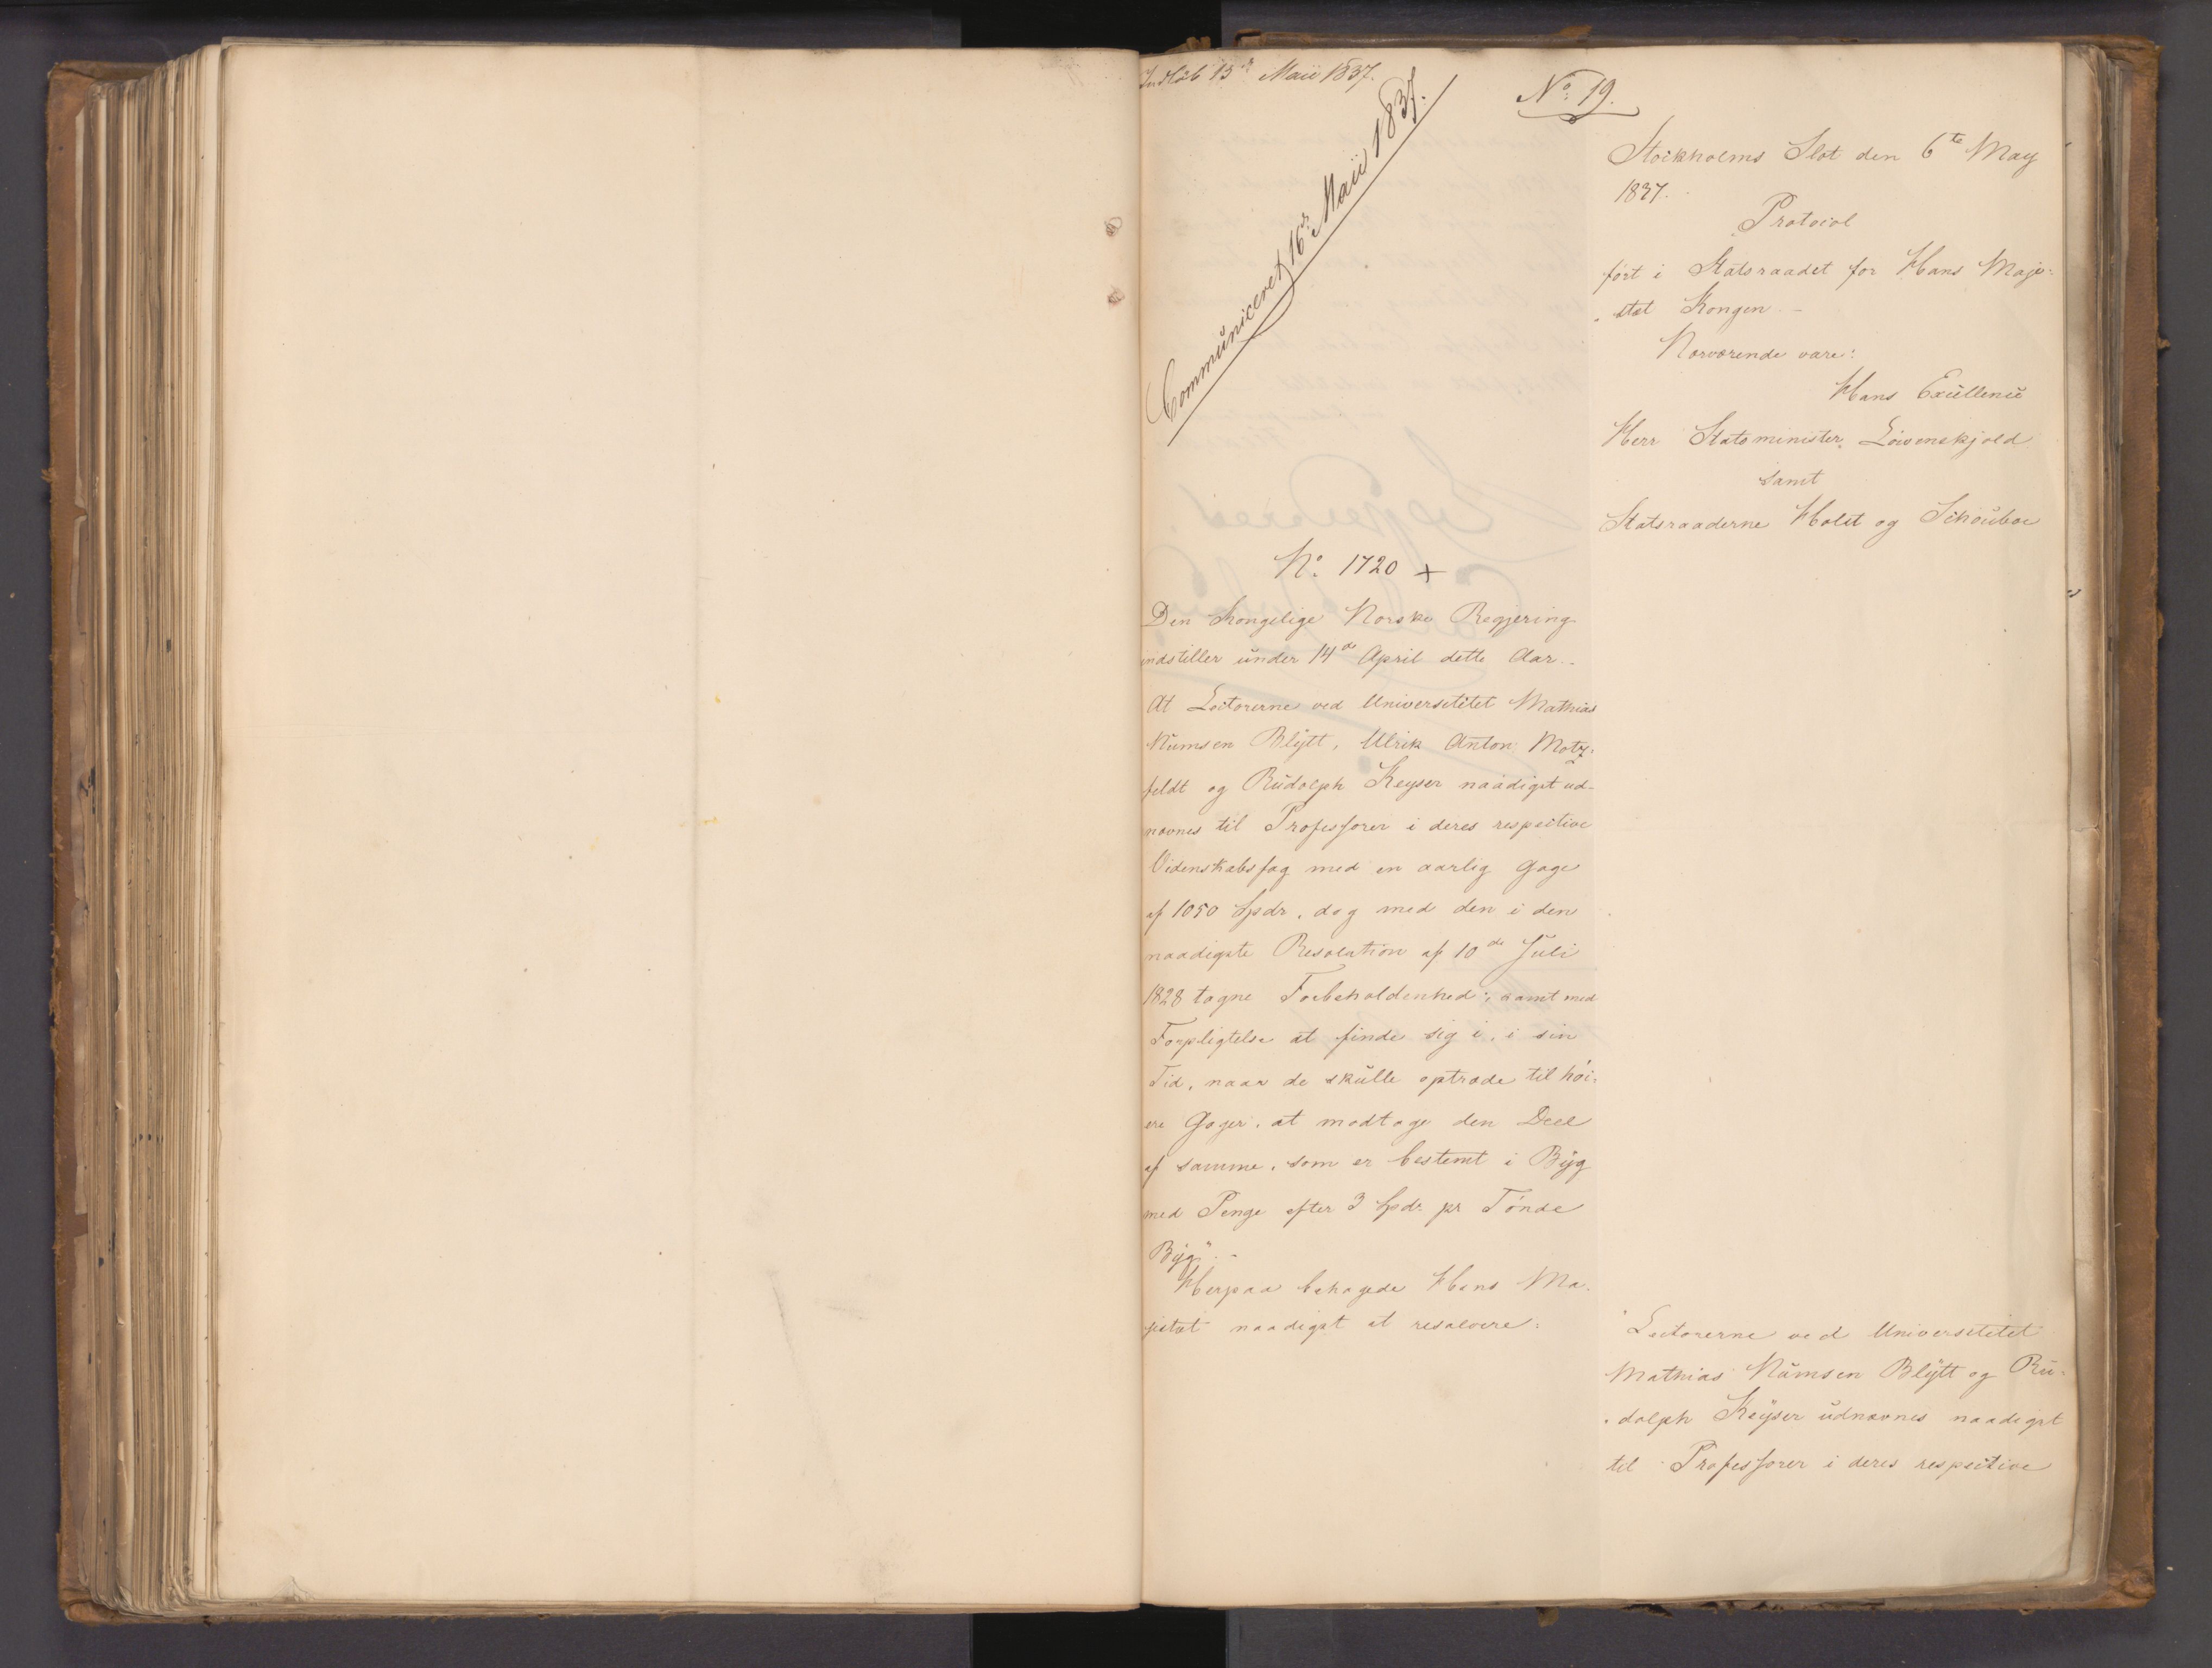 Indløb 13de Maii 1837.
Communiceret 16de Maii 1837.
No. 19.
Stockholms Slot den 6te May
1837.
Protocol
ført i Statsraadet for Hans Maje-
stæt Kongen. –
Nærværende vare:
Hans Excellence
Herr Statsminister Løvenskjold
samt
Statsraaderne Holst og Schouboe
No. 1720 +
Den Kongelige Norske Regjering
indstiller under 14de April dette Aar. –
At Lectorerne ved Universitetet Mathias
Numsen Blytt, Ulrik Anton Motz-
feldt og Rudolph Keyser naadigst ud-
nævnes til Professorer i deres respective
Videnskabsfag med en aarlig Gage
af 1050 Spdr, dog med den i den
naadigste Resolution af 10de Juli
1828 tagne Forbeholdenhed, samt med
Forpligtelse at finde sig i, i sin
Tid, naar de skulle optræde til høi-
ere Gager, at modtage den Deel
af samme, som er bestemt i Byg
med Penge efter 3 Spdr pr Tønde
Byg". –
Herpaa behagede Hans Ma-
jestæt naadigst at resolvere:
"Lectorerne ved Universitetet
Mathias Numsen Blytt og Ru-
dolph Keyser udnævnes naadigst
til Professorer i deres respective